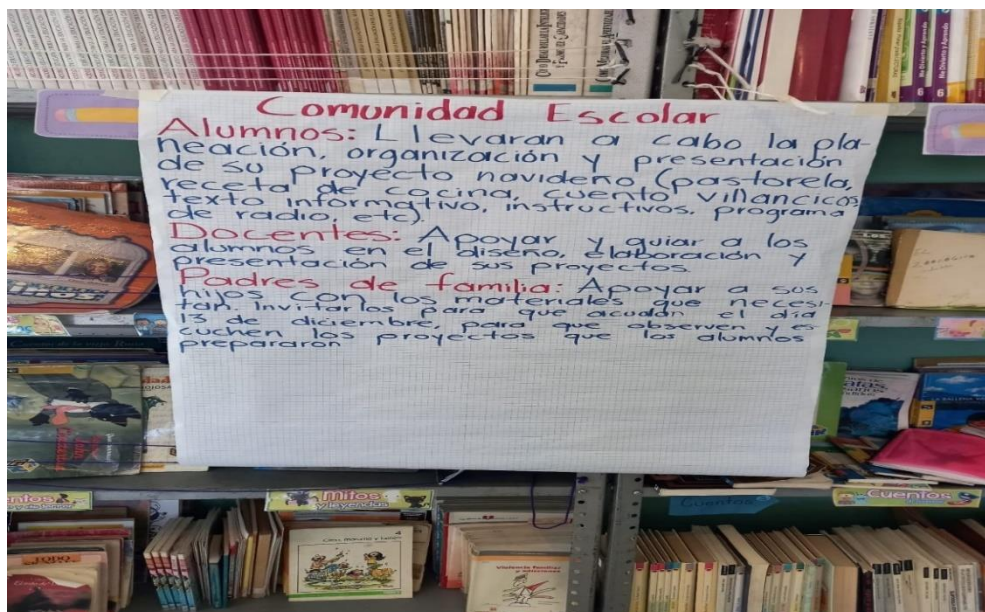 Comunidad Escolar
Alumnos: Llevaran a cabo la pla-
neación, organización y presentación
de su proyecto navideño (pastorela,
receta de cocina, cuento villancicos,
texto informativo, instructivos, programa
de radio, etc).
Docentes: Apoyar y guiar a los
alumnos en el diseño, elaboración y
presentación de sus proyectos.
Padres de familia: Apoyar a sus
hijos con los materiales que necesi-
tan. Invitarlos para que acudan el día
13 de diciembre, para que observen y es-
cuchen los proyectos que los alumnos
prepararon
Mitos
y leyendas
Cuentos
Cuentos
Violencia familiar
y adicciones